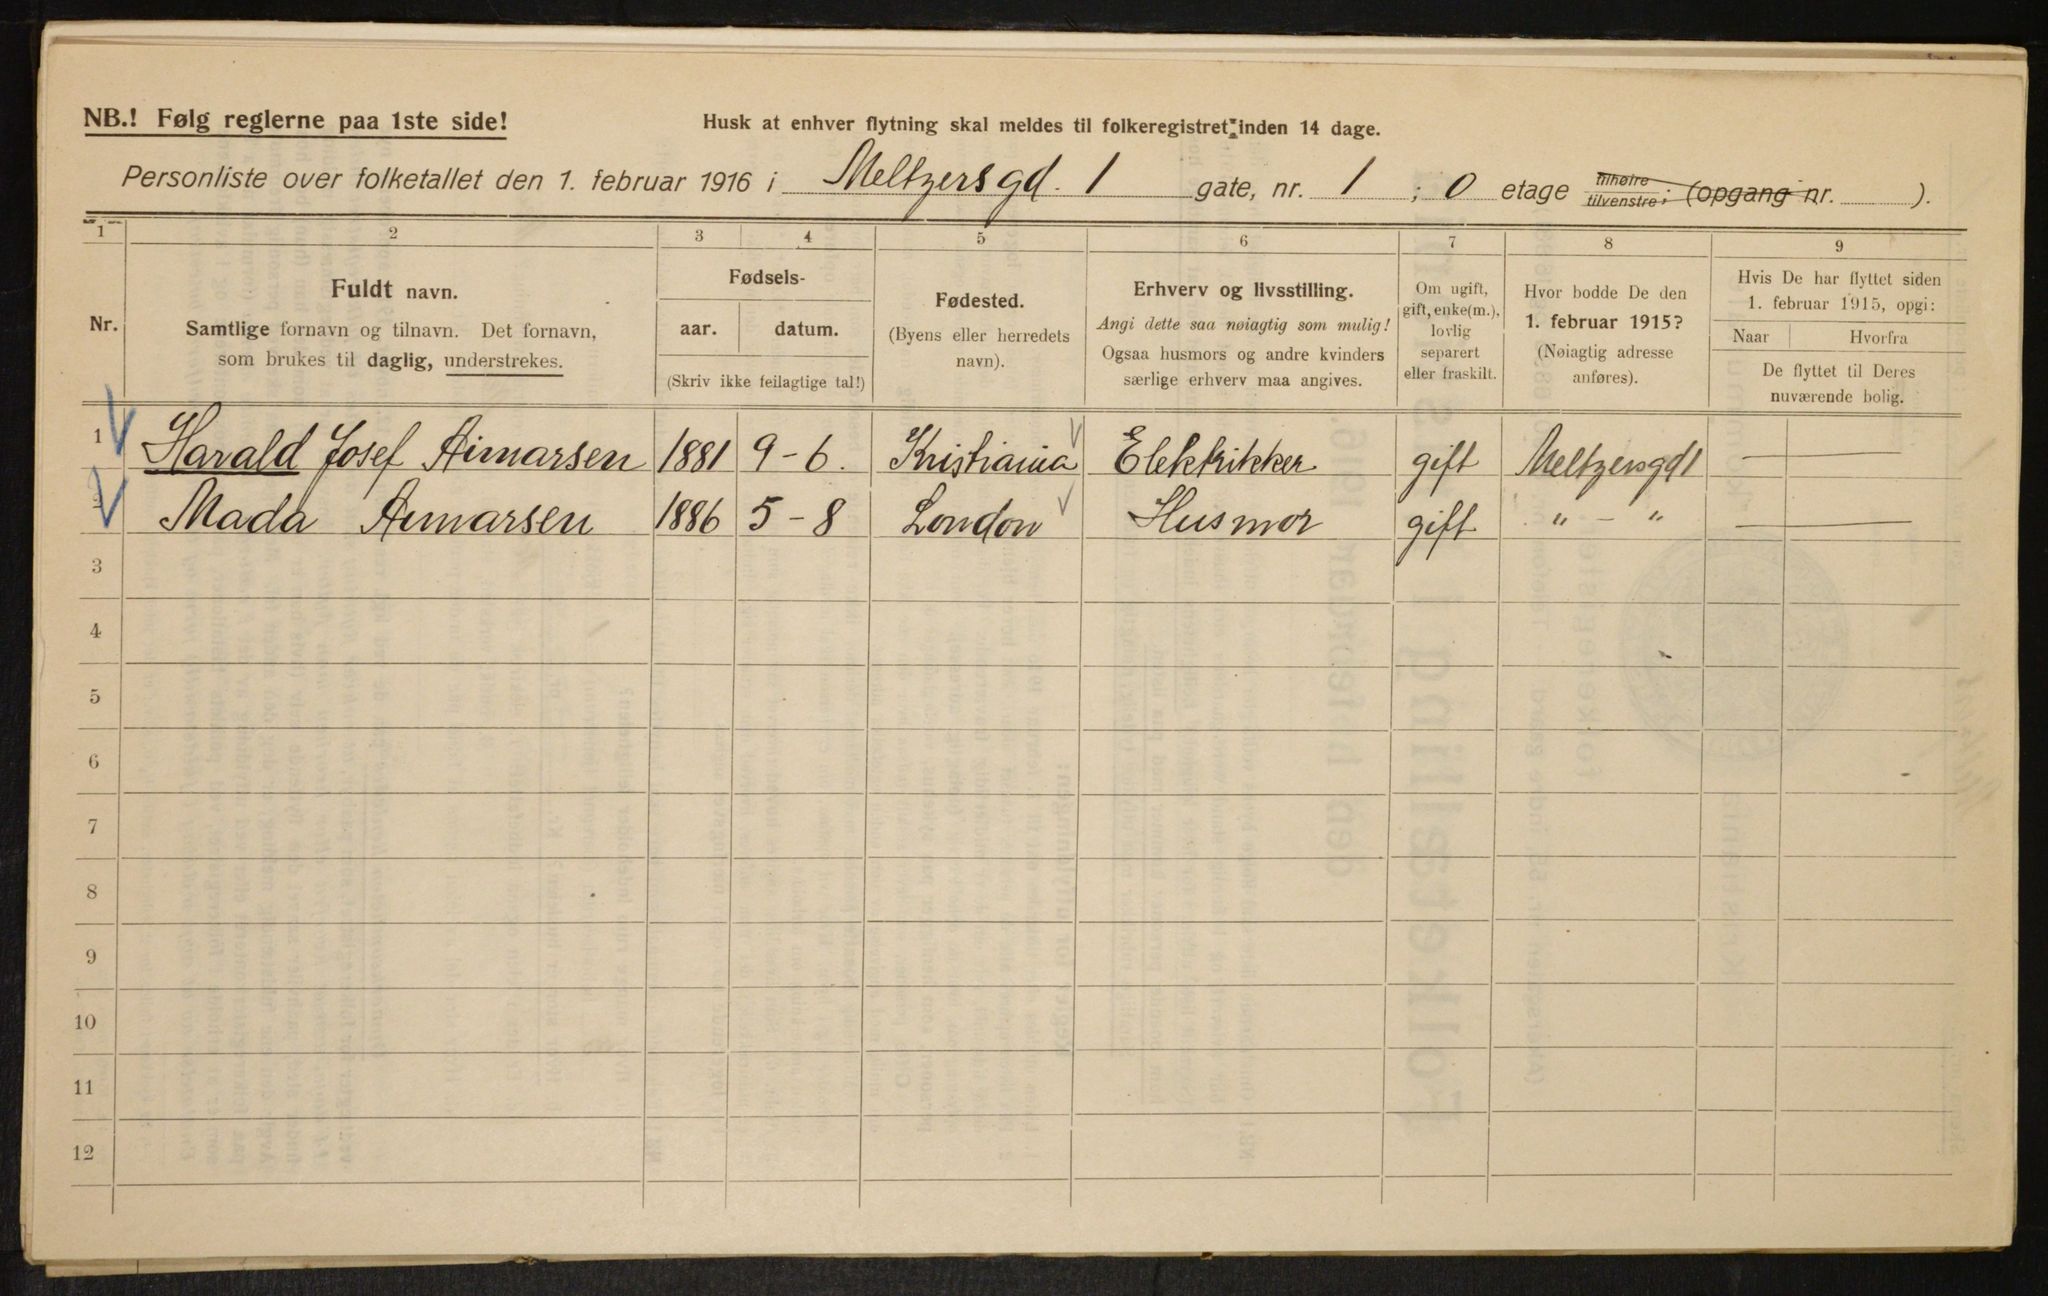 NB.! Følg reglerne paa 1ste side!
Husk at enhver flytning skal meldes til folkeregistret inden 14 dage.
Personliste over folketallet den 1. februar 1916 i Meltzersgd. 1 gate, nr. 1 ; 0 etage tilhøire tilvenstre; (opgang nr. ).
1 2 3 4 5 6 7 8 9
Nr.
Fuldt navn.
Samtlige fornavn og tilnavn. Det fornavn,
som brukes til daglig, understrekes.
Fødsels-
aar. datum.
(Skriv ikke feilagtige tal!)
Fødested.
(Byens eller herredets
navn).
Erhverv og livsstilling.
Angi dette saa nøiagtig som mulig!
Ogsaa husmors og andre kvinders
særlige erhverv maa angives.
Om ugift,
gift, enke(m.),
lovlig
separert
eller fraskilt.
Hvor bodde De den
1. februar 1915?
(Nøiagtig adresse
anføres).
Hvis De har flyttet siden
1. februar 1915, opgi:
Naar Hvorfra
De flyttet til Deres
nuværende bolig.
1 Harald Josef Aimarsen 1881 9-6. Kristiania Elektrikker gift Meltzersgd 1 —
2 Mada Aimarsen 1886 5-8 London Husmor gift " - " —
3
4
5
6
7
8
9
10
11
12